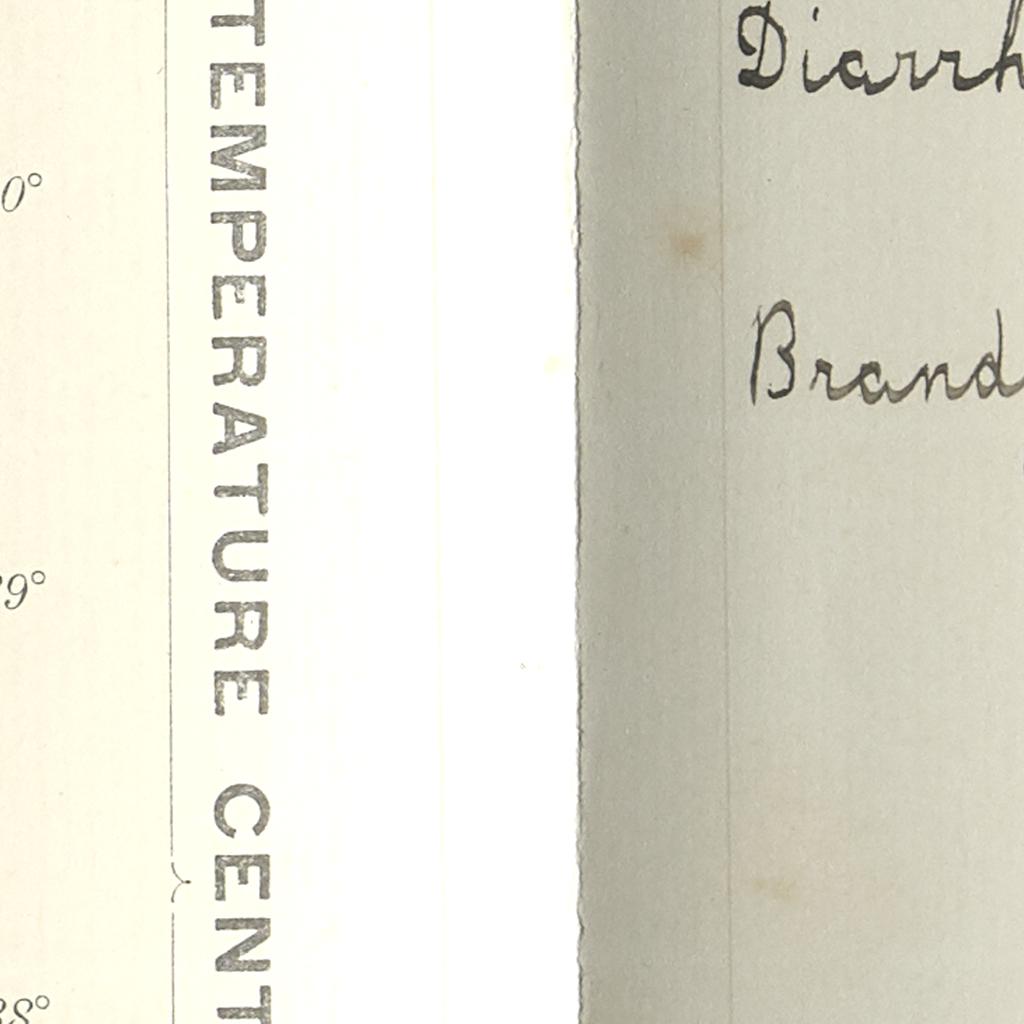 0°
TEMPERATURE CENT
9°
8°
Diarrh
Brand